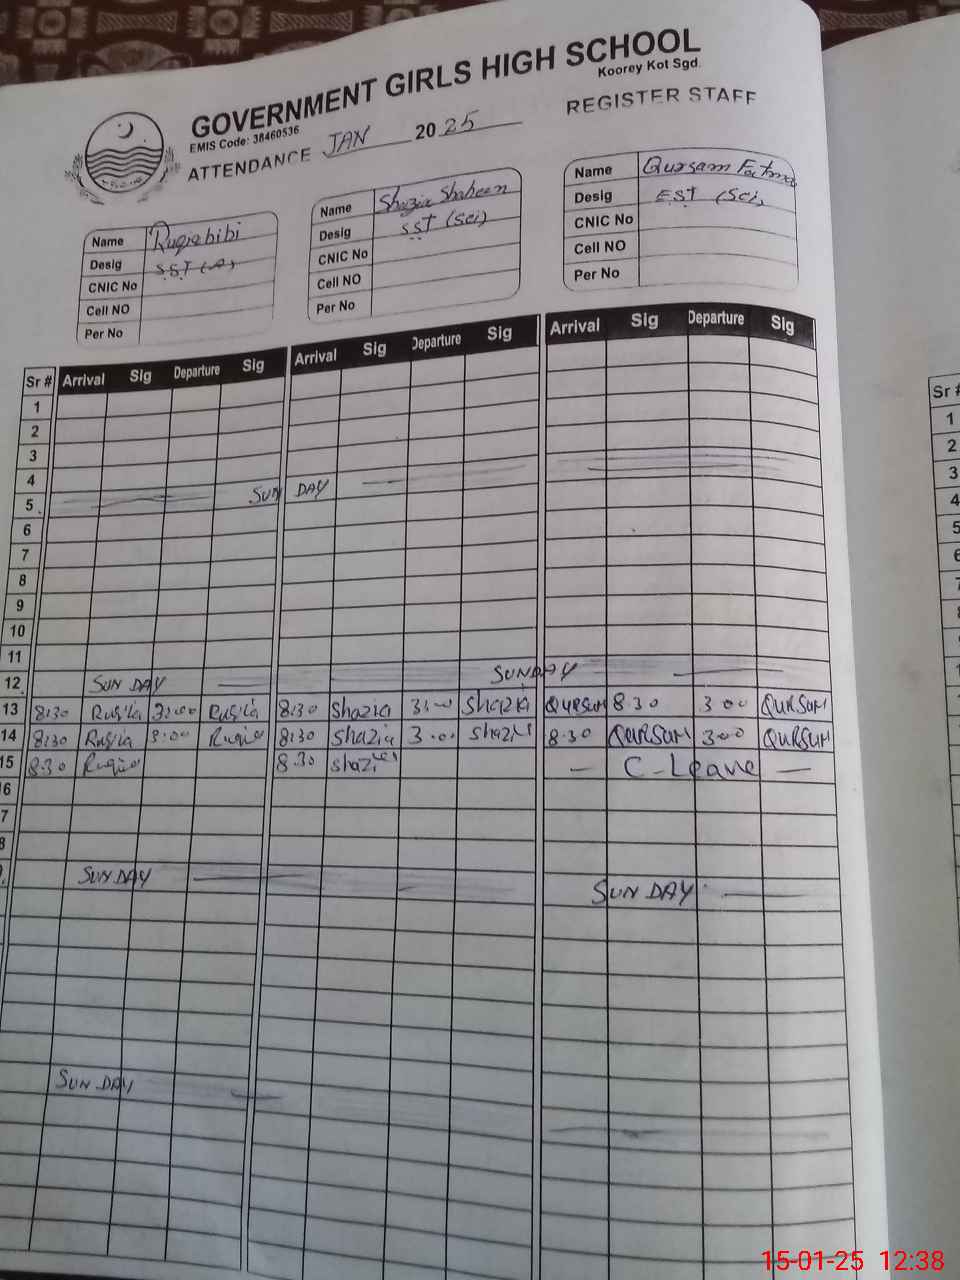 GOVERNMENT GIRLS HIGH SCHOOL
Koorey Kot Sgd.
EMIS Code: 38460536
ATTENDANCE JAN 2025 REGISTER STAFF
Name Ruqiabibi
Desig SST
CNIC No
Cell NO
Per No
Name Shazia Shaheen
Desig SST (Sci)
CNIC No
Cell NO
Per No
Name Qursam Fatma
Desig EST (Sci)
CNIC No
Cell NO
Per No
Sr # Arrival Sig Departure Sig Arrival Sig Departure Sig Arrival Sig Departure Sig
1
2
3
4
5 SUN DAY
6
7
8
9
10
11
12 SUN DAY SUNDAY
13 8:30 Ruqia 3:00 Ruqia 8:30 Shazia 3:00 Shazia QURSUM 8:30 3:00 QURSUM
14 8:30 Ruqia 3:00 Ruqia 8:30 Shazia 3:00 Shazia 8:30 QURSUM 3:00 QURSUM
15 8:30 Ruqia 8:30 Shazia — C-Leave —
6
7
8
SUN DAY SUN DAY
SUN DAY
Sr #
1
2
3
4
5
6
7
15-01-25 12:38